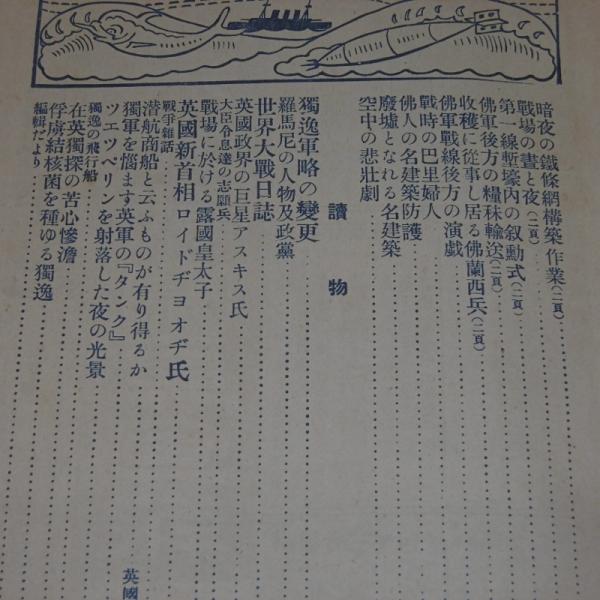 暗夜の鐵條網構築作業(二頁)
戰場の晝と夜(二頁)
第一線塹壕內の敘勳式(二頁)
佛軍後方の糧秣輸送(二頁)
收穫に從事し居る佛蘭西兵(二頁)
佛軍戰線後方の演戲
戰時の巴里婦人
佛人の名建築防護
廢墟となれる名建築
空中の悲壯劇
讀物
獨逸軍略の變更
羅馬尼の人物及政黨
世界大戰日誌
英國政界の巨星アスキス氏
大臣令息達の志願兵
戰場に於ける露國皇太子
英國新首相ロイドヂヨオヂ氏
戰爭雜話
潜航商船と云ふものが有り得るか
獨軍を惱ます英軍の『タンク』
ツエツペリンを射落した夜の光景
獨逸の飛行船
在英獨探の苦心慘澹
俘虜結核菌を種ゆる獨逸
編輯だより
英國